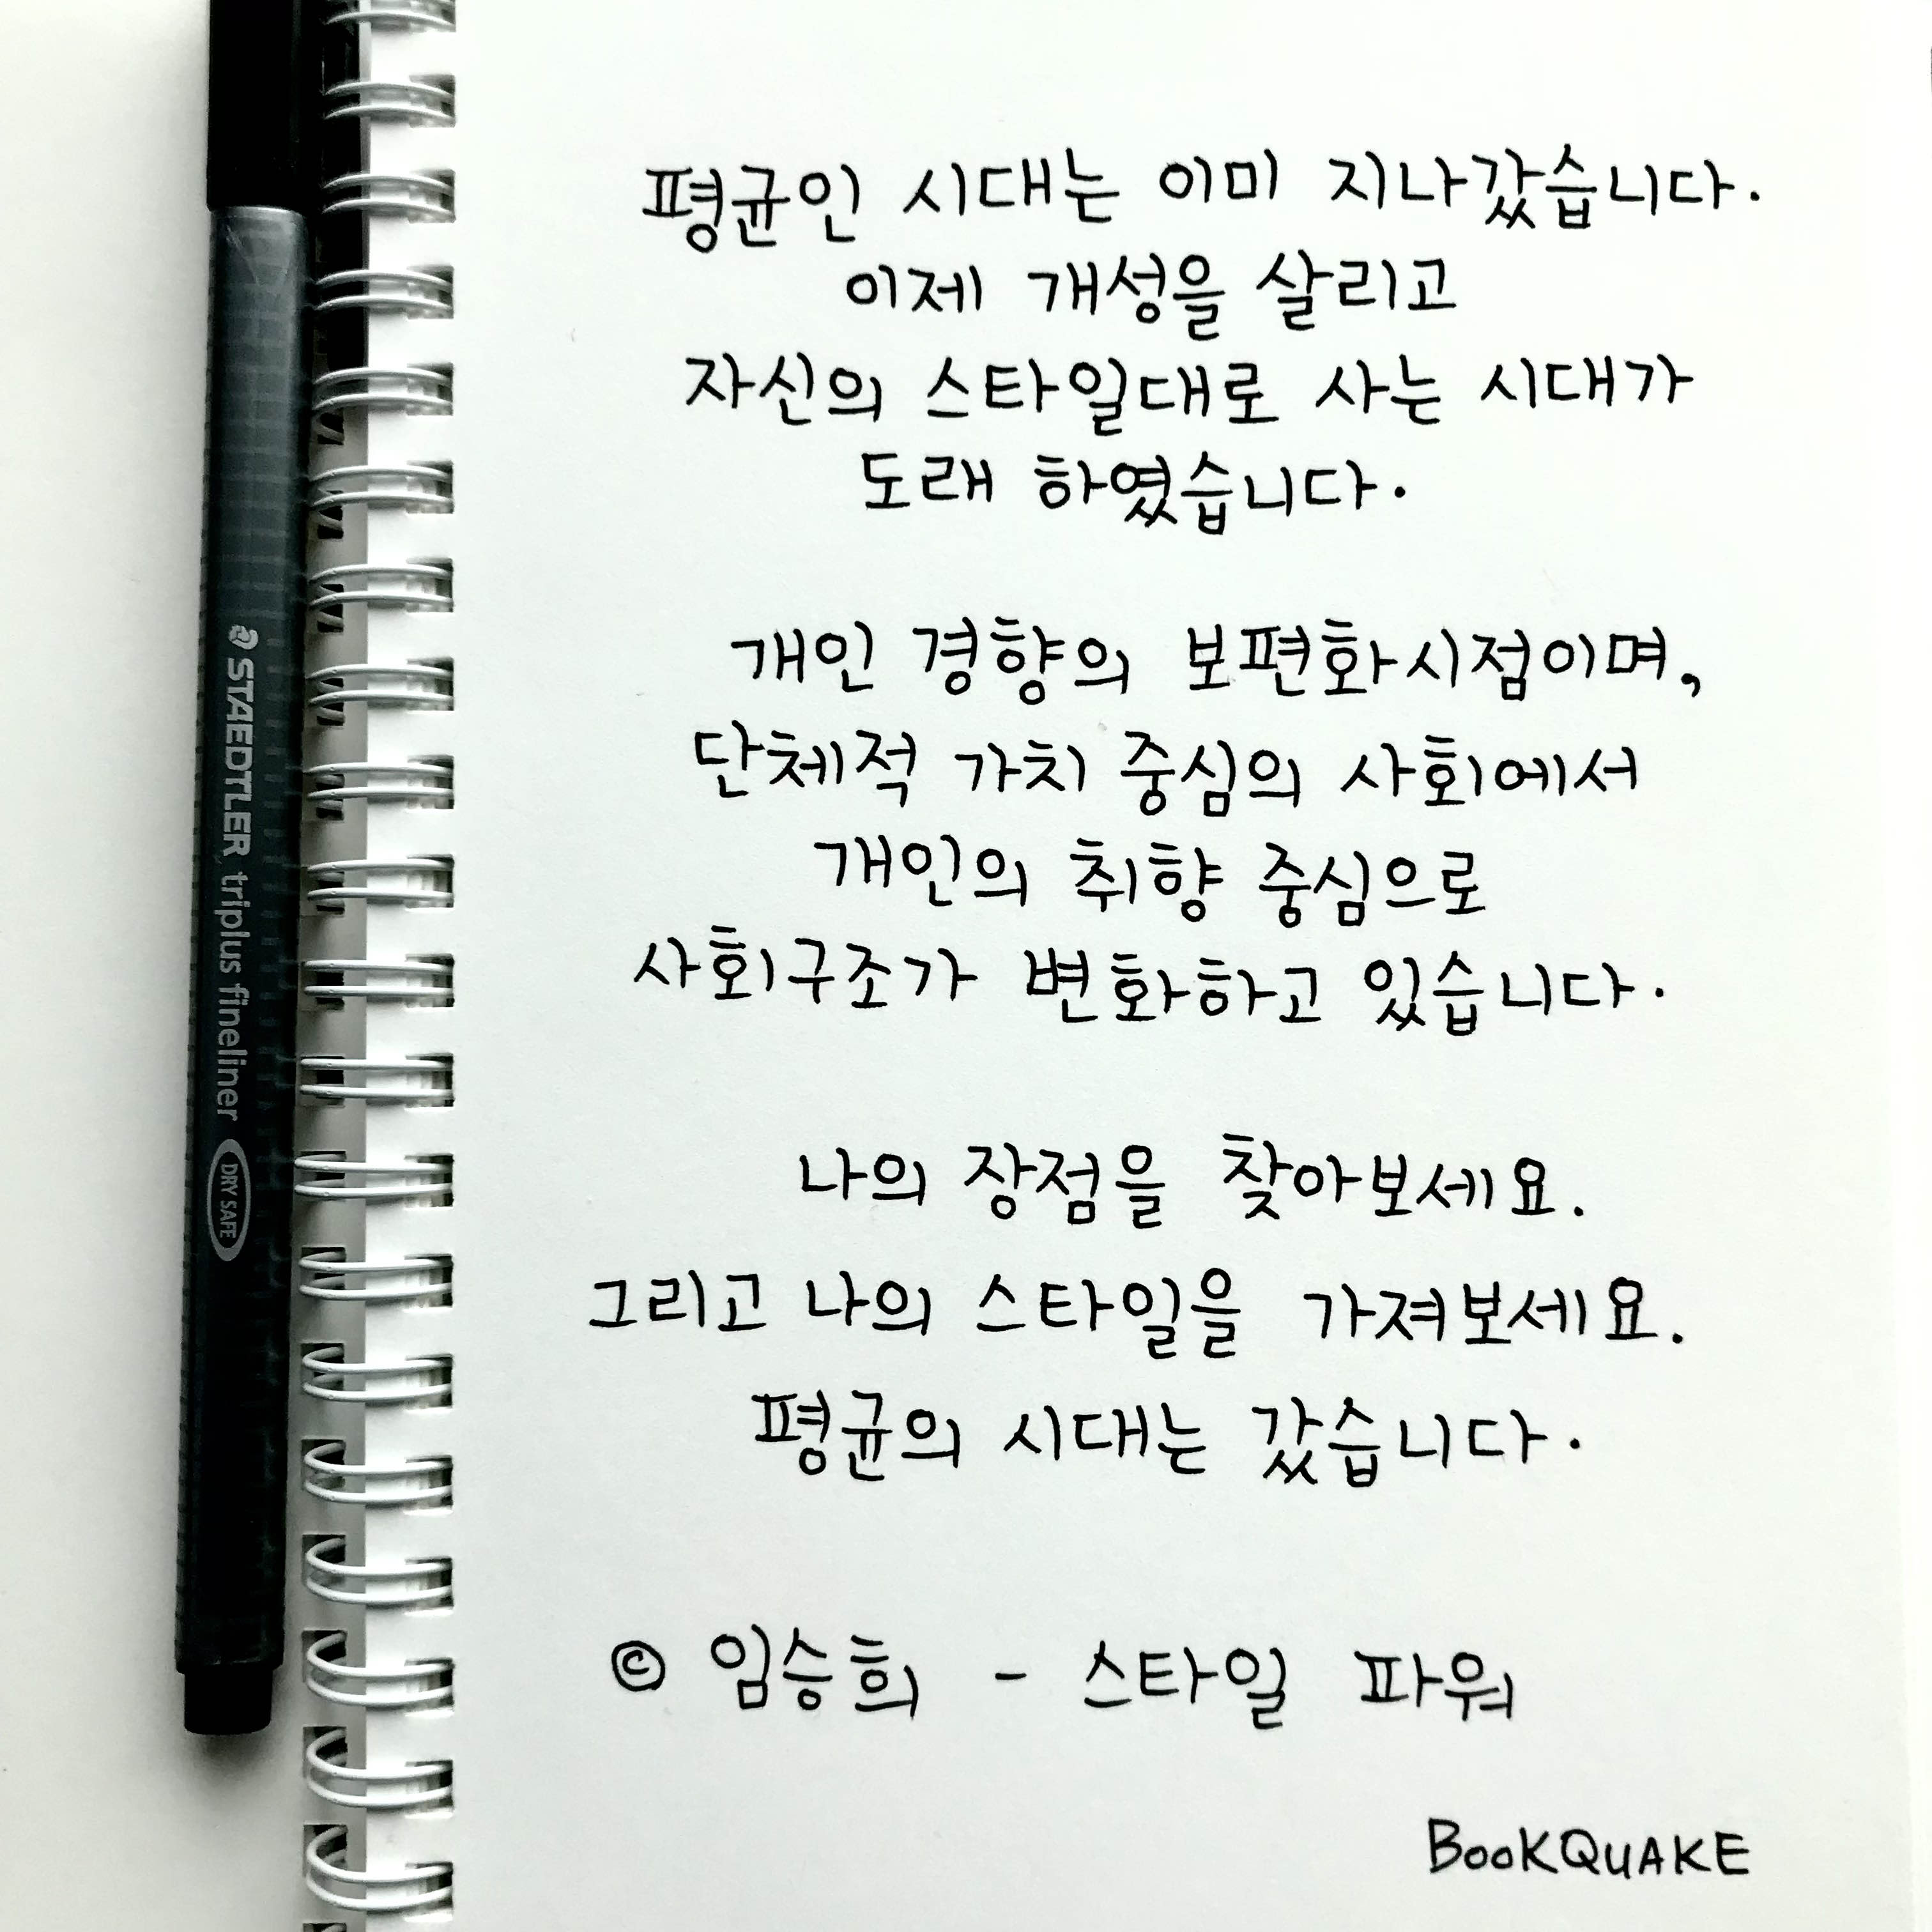 평균인 시대는 이미 지나갔습니다.
이제 개성을 살리고
자신의 스타일대로 사는 시대가
도래 하였습니다.
개인 경향의 보편화시점이며,
단체적 가치 중심의 사회에서
개인의 취향 중심으로
사회구조가 변화하고 있습니다.
나의 장점을 찾아보세요.
그리고 나의 스타일을 가져보세요.
평균의 시대는 갔습니다.
© 임승희 - 스타일 파워
BOOKQUAKE
STAEDTLER triplus fineliner DRY SAFE